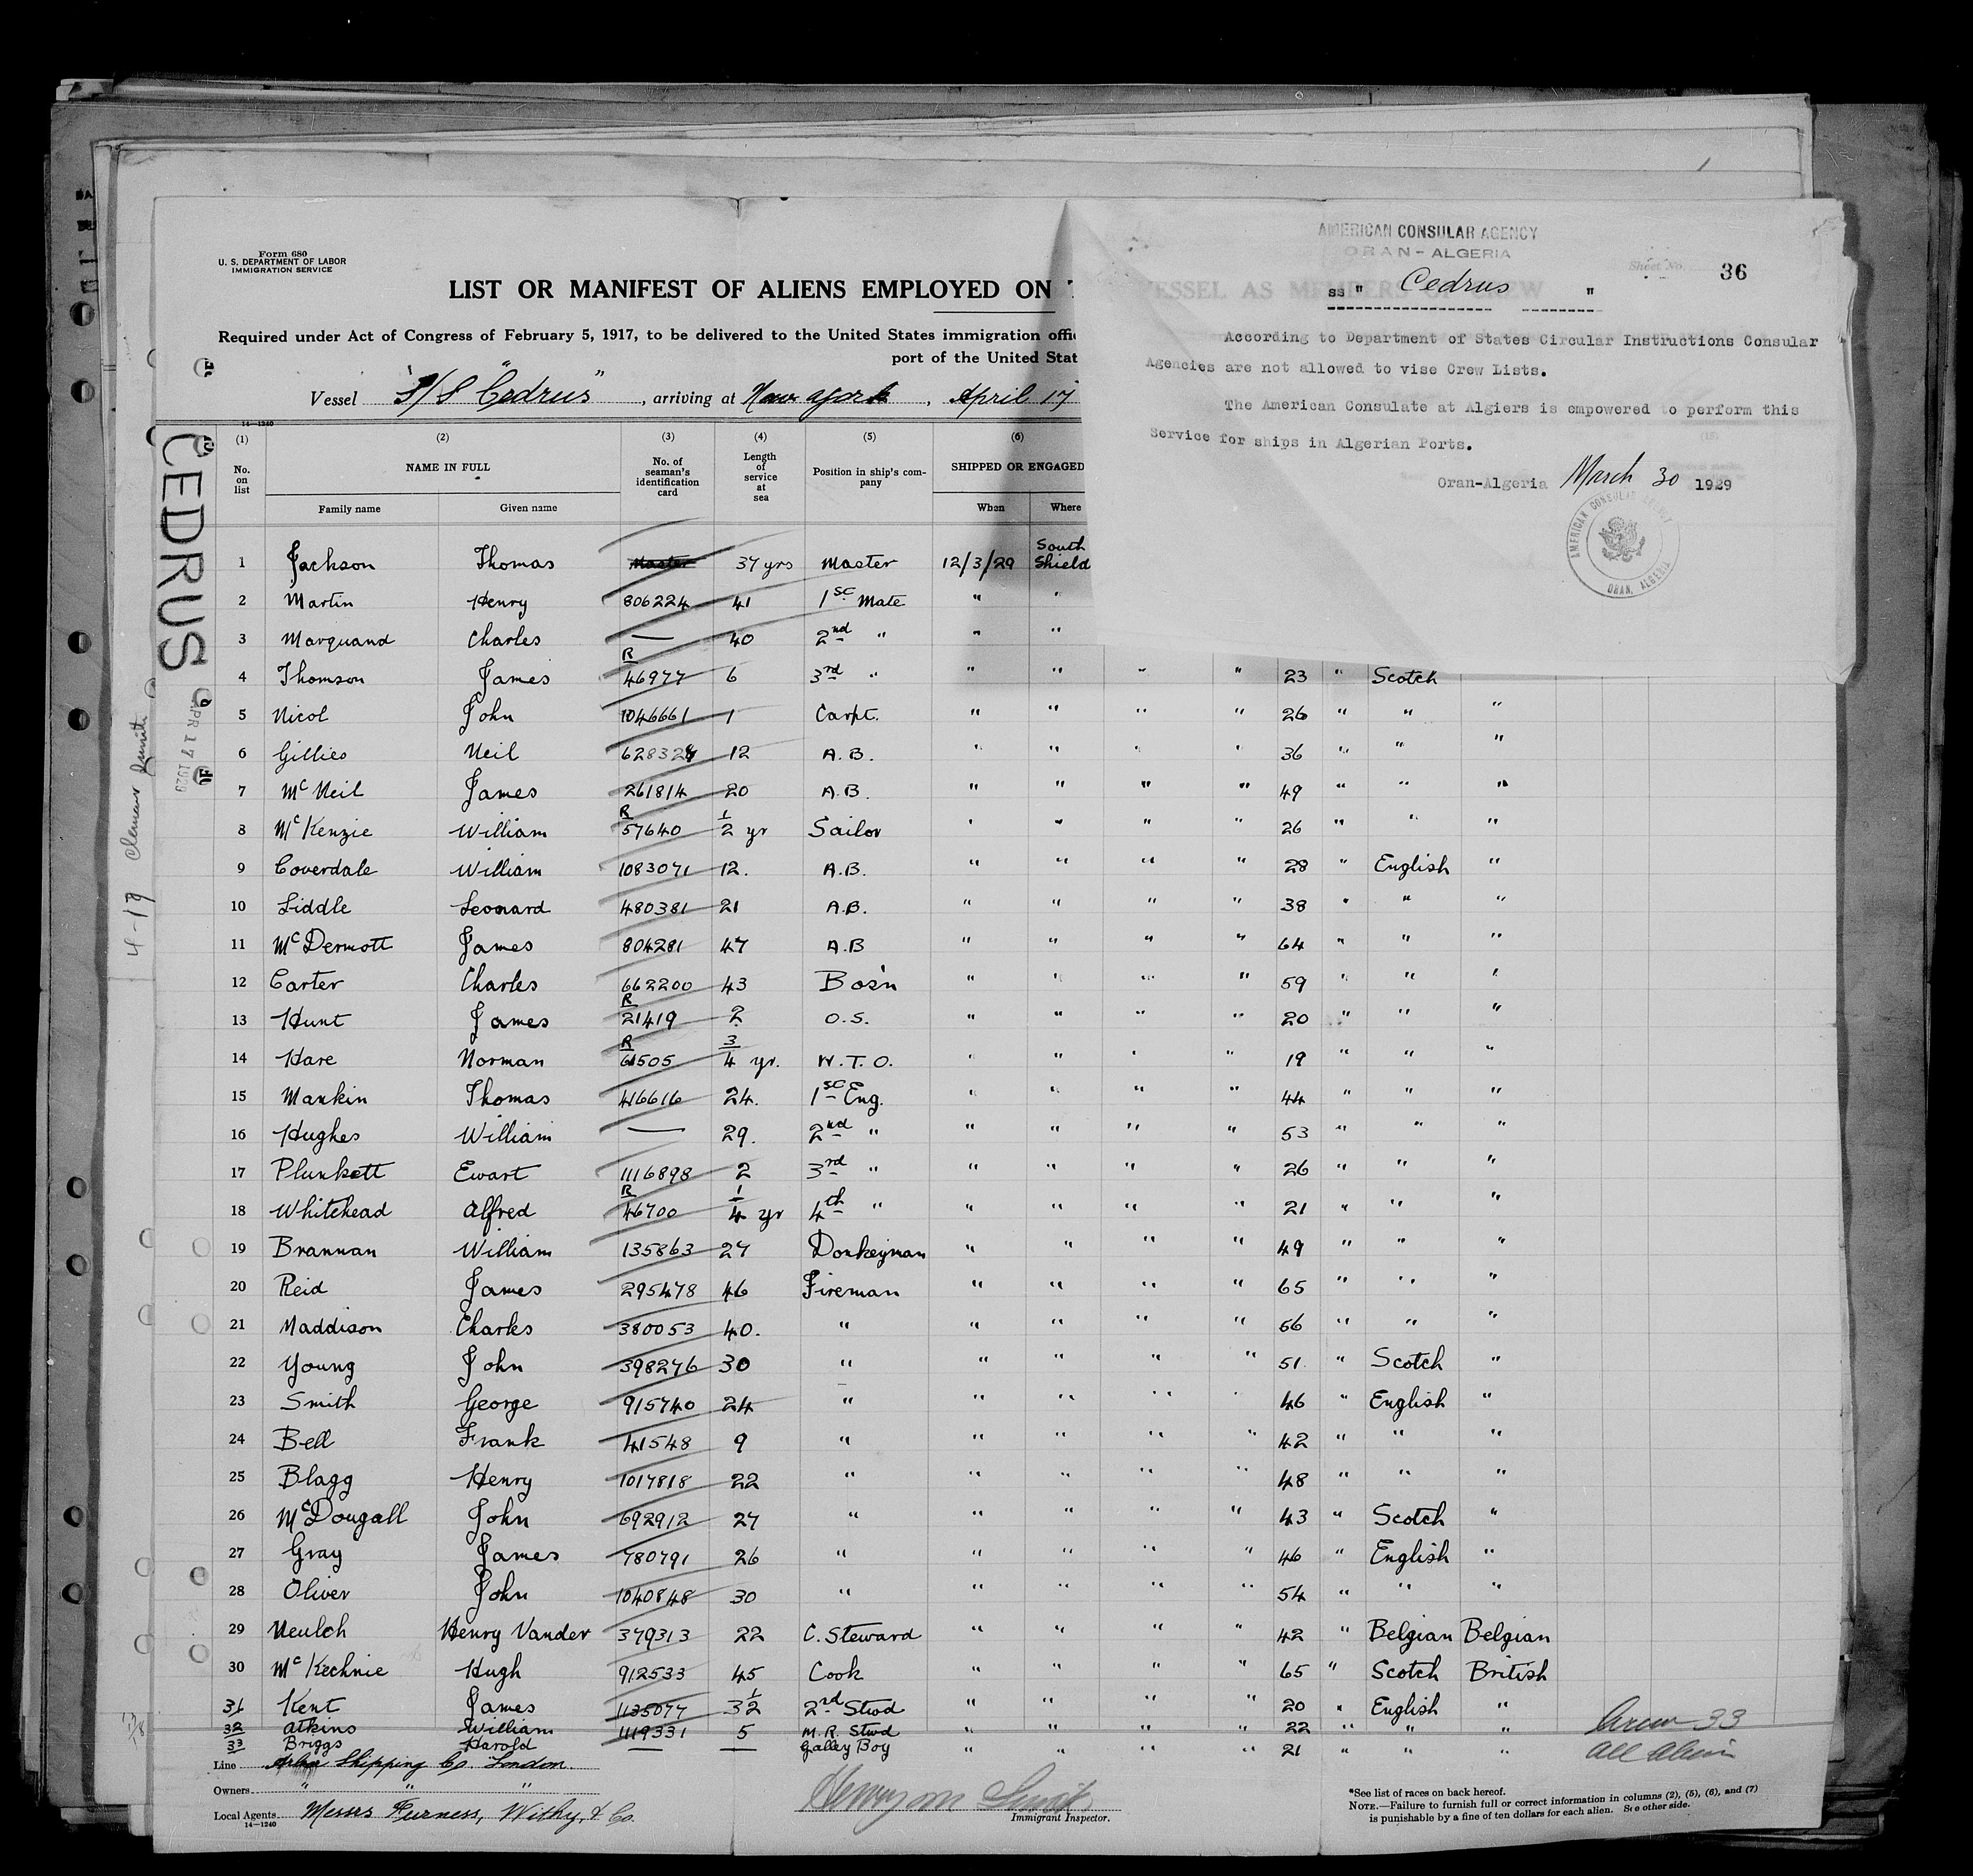 Form 680
U. S. DEPARTMENT OF LABOR
IMMIGRATION SERVICE
LIST OR MANIFEST OF ALIENS EMPLOYED ON
Required under Act of Congress of February 5, 1917, to be delivered to the United States immigration
port of the United
Vessel S/S "Cedrus", arriving at New York, April 17
AMERICAN CONSULAR AGENCY
ORAN-ALGERIA
Sheet No. 36
VESSEL AS MEMBERS OF CREW
ss " Cedrus "
According to Department of States Circular Instructions Consular
Agencies are not allowed to vise Crew Lists.
The American Consulate at Algiers is empowered to perform this
Service for ships in Algerian Ports.
Oran-Algeria March 30 1929
AMERICAN CONSULAR AGENCY
ORAN, ALGERIA
CEDRUS
APR 17 1929
4-19
14—1240
(1) (2) (3) (4) (5) (6)
No. on list
NAME IN FULL
Family name Given name
No. of seaman's identification card
Length of service at sea
Position in ship's company
SHIPPED OR ENGAGED
When Where
1 Jackson Thomas Master 37 yrs Master 12/3/29 South Shield
2 Martin Henry 806224 41 1st Mate " "
3 Marquand Charles — 40 2nd " " "
4 Thomson James R 46977 6 3rd " " " " " 23 " Scotch
5 Nicol John 1046661 1 Carpt. " " " " 26 " " "
6 Gillies Neil 628324 12 A.B. " " " " 36 " " "
7 McNeil James 261814 20 A.B. " " " " 49 " " "
8 McKenzie William R 57640 1/2 yr Sailor " " " " 26 " " "
9 Coverdale William 1083071 12. A.B. " " " " 28 " English "
10 Liddle Leonard 480381 21 A.B. " " " " 38 " " "
11 McDermott James 804281 47 A.B " " " " 64 " " "
12 Carter Charles 662200 43 Bos'n " " " " 59 " " "
13 Hunt James R 21419 2 O.S. " " " " 20 " " "
14 Hare Norman R 61505 3/4 yr. W.T.O. " " " " 19 " " "
15 Mankin Thomas 416616 24. 1st Eng. " " " " 44 " " "
16 Hughes William — 29. 2nd " " " " " 53 " " "
17 Plunkett Ewart 1116898 2 3rd " " " " " 26 " " "
18 Whitehead Alfred R 46700 1/4 yr 4th " " " " " 21 " " "
19 Brannan William 135863 27 Donkeyman " " " " 49 " " "
20 Reid James 295478 46 Fireman " " " " 65 " " "
21 Maddison Charles 380053 40. " " " " " 66 " " "
22 Young John 398276 30 " " " " " 51 " Scotch "
23 Smith George 915740 24 " " " " " 46 " English "
24 Bell Frank 41548 9 " " " " " 42 " " "
25 Blagg Henry 1017818 22 " " " " " 48 " " "
26 McDougall John 692912 27 " " " " " 43 " Scotch "
27 Gray James 780791 26 " " " " " 46 " English "
28 Oliver John 1040848 30 " " " " " 54 " " "
29 Henry Vander 379313 22 C. Steward " " " " 42 " Belgian Belgian
30 McKechnie Hugh 912533 45 Cook " " " " 65 " Scotch British
31 Kent James 1135077 3 1/2 2nd Stwd " " " " 20 " English "
32 Atkins William 1119331 5 M.R. Stwd " " " " 22 " " "
33 Briggs Harold — — Galley Boy " " " " 21 " " "
Crew 33
all alien
Line Shipping Co. London.
Owners " " "
Local Agents Messrs Furness, Withy, & Co.
14—1240
Immigrant Inspector.
*See list of races on back hereof.
NOTE.—Failure to furnish full or correct information in columns (2), (5), (6), and (7)
is punishable by a fine of ten dollars for each alien. See other side.